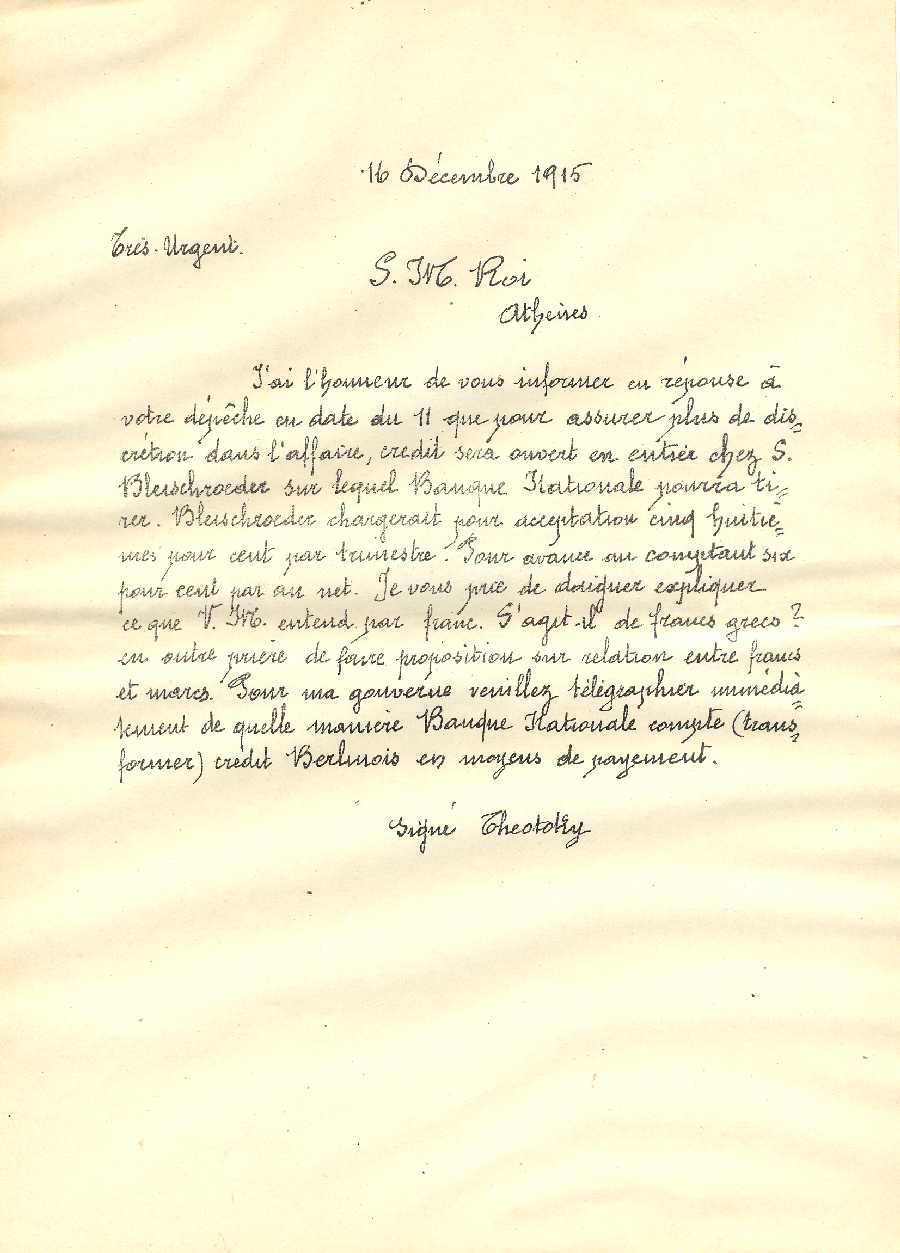 16 Décembre 1915
Très-Urgent.
S. M. Roi
Athènes
J'ai l'honneur de vous informer en réponse à
votre dépêche en date du 11 que pour assurer plus de dis=
crétion dans l'affaire, credit sera ouvert en entier chez S.
Bleischroeder sur lequel Banque Nationale pourra ti=
rer. Bleischroeder chargerait pour acceptation cinq huitiè=
mes pour cent par trimestre. Pour avance au comptant six
pour cent par an net. Je vous prie de daigner expliquer
ce que V. M. entend par franc. S'agit-il de francs grecs?
en outre prière de faire proposition sur relation entre francs
et marcs. Pour ma gouverne veuillez télégraphier immédia=
tement de quelle manière Banque Nationale compte (trans=
former) credit Berlinois en moyens de payement.
Signé Theotoky